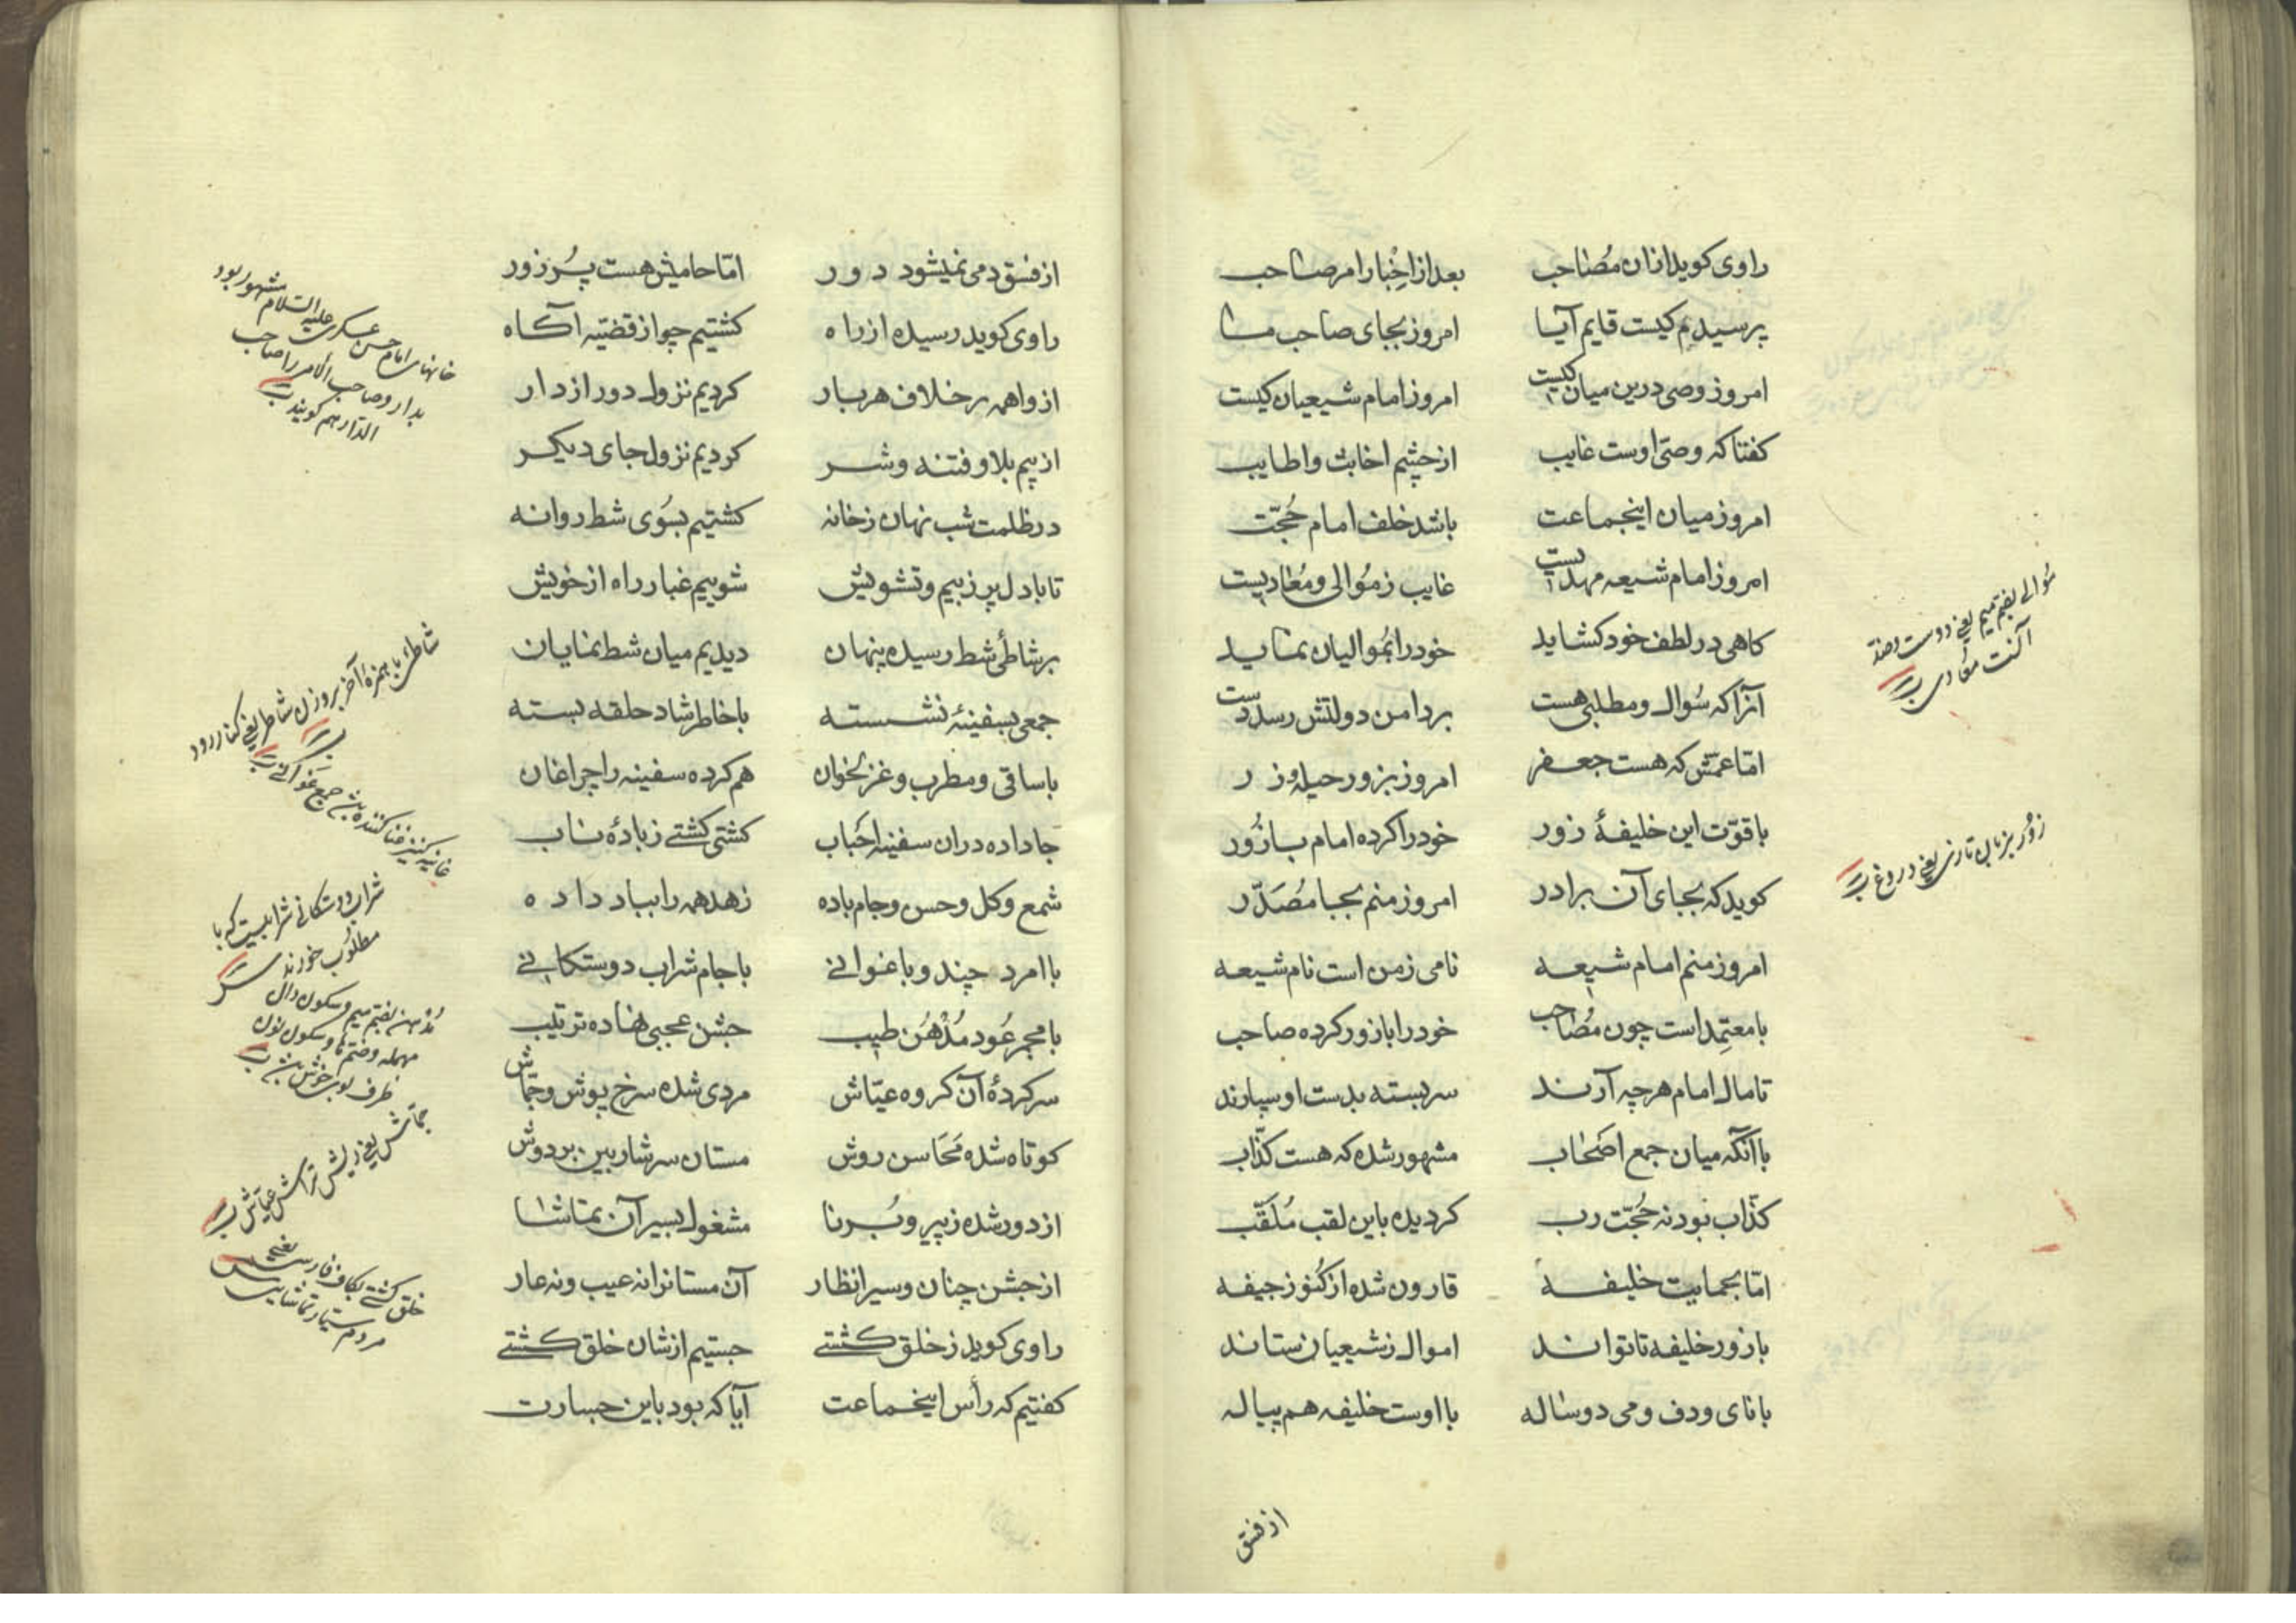 راوی کوید ازان مُصٰاحب بعد از اَخبار امر صٰاحب
پرسیدم کیست قایم آیا امروز بجای صاحب مٰا
امروز وصی درین میان کیست امروز امام شیعیان کیست
کفتا که وصیّ اوست غایب از چشم اخابث و اطایب
امروز میان اینجماعت باشد خلف امام حُجّت
امروز امام شیعه مهدیست غایب ز مُوالی و مُعٰادیست
کاهی در لطف خود کشاید خود را بمُوالیان نماید
آنرا که سُوال و مطلبی هست بر دامن دولتش رسد دست
امّا عمّش که هست جعفر امروز بزور حیله و زر
با قوّت این خلیفهٔ زور خود را کرده امام با زُور
کوید که بجای آن برادر امروز منم بجا مُصَدَّر
امروز منم امام شیعه نامی ز من است نام شیعه
با معتمِد است چون مُصٰاحب خود را با زور کرده صاحب
تا مال امام هرچه آرند سربسته بدست او سپارند
با آنکه میان جمع اصَحٰاب مشهور شده که هست کذّاب
کذّاب نبود نه حُجّت رب کردیده باین لقب مُلَقّب
امّا بحمایت خلیفه قارون شده از کُنوز جیفه
با زور خلیفه تا تواند اموال ز شیعیان ستاند
با نای و دف و می دوسٰاله با اوست خلیفه هم پیاله
مُوالے بضم میم یعنے دوست و ضد
آکنت مُعادی
زُور بزبان تازی یعنے دروغ
از فسق
از فسق دمی نمیشود دور امّا حامیش هست پُر زور
راوی کوید رسیده از راه کشتیم چو از قضیّه آکاه
از واهمه بر خلاف هر بار کردیم نزول دور از دار
از بیم بلا و فتنه و شر کردیم نزول جای دیکر
در ظلمت شب نهان ز خانه کشتیم بسُوی شط روانه
تا با دل پر ز بیم و تشویش شوییم غبار راه از خویش
بر شاطئ شط رسیده پنهان دیدیم میان شط نمایان
جمعی بسفینهٔ نشسته با خاطر شاد حلقه بسته
با ساقی و مطرب و غزلخوان هم کرده سفینه را چراغان
جا داده دران سفینه احَباب کشتی کشتے ز بادهٔ ناب
شمع و کل و حسن و جام باده زهد همه را بباد داده
با امرد چند و با غوانے با جام شراب دوستکانے
با مجمر عُود مُدْهُن طیب جشن عجبی نهاده ترتیب
سرکردهٔ آن کروه عیّاش مردی شده سرخ پوش و جمّاش
کوتاه شده مَحَاسن روش مستان سرشار بین بر دوش
از دور شده ز پیر و بُرنا مشغول بسیر آن تماشا
از جشن چنان و سیر انظار آن مستانرا نه عیب و نه عار
راوی کوید ز خلق کشتے جستیم ازیشان خلق کشتے
کفتیم که رأس اینجماعت آیا که بود باین جسارت
خانهای امام حسن عسکری علیه السّلام مشهور بود
بدار و صاحب الامر را صاحب
الدّار هم کویند
شاطئ با همزهٔ آخر بروزن شاطر یعنے کنار رود
غانیه کنیز غنا کننده جمع غوانے
شراب دوستکانے شرابیست که با
مطلوب خورند
مُدْهن بضم میم و سکون دال
مهمله و ضم ها و سکون نون
ظرف بوی خوش
جمّاش یعنے ریش تراش عیّاش
خلق کشتے بکاف فارسے یعنے
مردم سیّار تماشایی